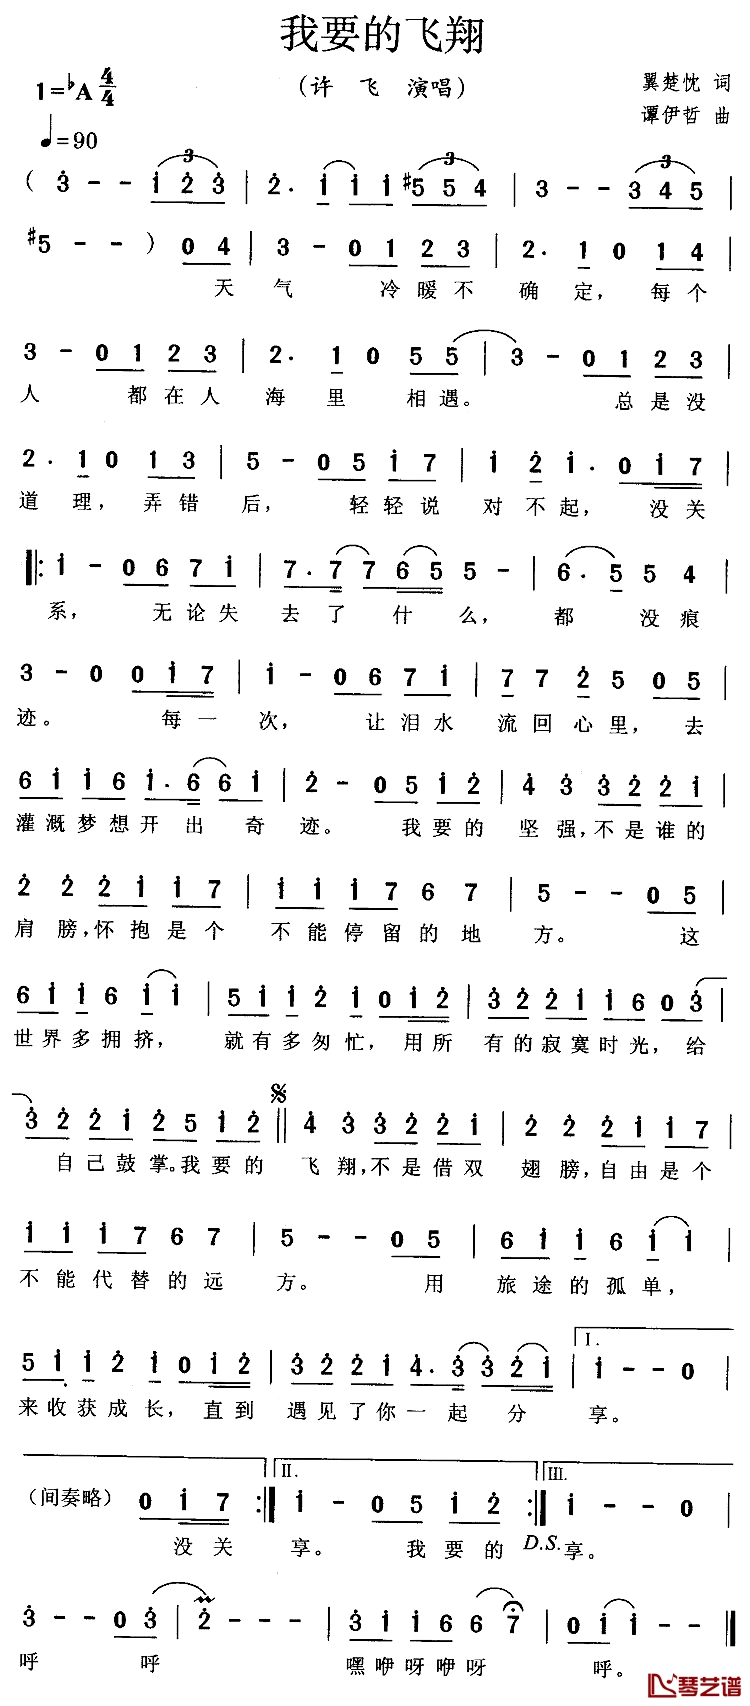 我要的飞翔
1=♭A 4/4 （许 飞 演唱） 翼楚忱 词
谭伊哲 曲
♩=90
( 3 - - 1 2 3 | 2. 1 1 1 #5 5 4 | 3 - - 3 4 5 |
#5 - - ) 0 4 | 3 - 0 1 2 3 | 2. 1 0 1 4 |
天 气 冷 暖 不 确 定， 每 个
3 - 0 1 2 3 | 2. 1 0 5 5 | 3 - 0 1 2 3 |
人 都 在 人 海 里 相 遇。 总 是 没
2. 1 0 1 3 | 5 - 0 5 1 7 | 1 2 1. 0 1 7 |
道 理， 弄 错 后， 轻 轻 说 对 不 起， 没 关
‖: 1 - 0 6 7 1 | 7. 7 7 6 5 5 - | 6. 5 5 4 |
系， 无 论 失 去 了 什 么， 都 没 痕
3 - 0 0 1 7 | 1 - 0 6 7 1 | 7 7 2 5 0 5 |
迹。 每 一 次， 让 泪 水 流 回 心 里， 去
6 1 1 6 1. 6 6 1 | 2 - 0 5 1 2 | 4 3 3 2 2 1 |
灌 溉 梦 想 开 出 奇 迹。 我 要 的 坚 强， 不 是 谁 的
2 2 2 1 1 7 | 1 1 1 7 6 7 | 5 - - 0 5 |
肩 膀， 怀 抱 是 个 不 能 停 留 的 地 方。 这
6 1 1 6 1 1 | 5 1 1 2 1 0 1 2 | 3 2 2 1 1 6 0 3 |
世 界 多 拥 挤， 就 有 多 匆 忙， 用 所 有 的 寂 寞 时 光， 给
3 2 2 1 2 5 1 2 ‖ 4 3 3 2 2 1 | 2 2 2 1 1 7 |
自 己 鼓 掌。 我 要 的 飞 翔， 不 是 借 双 翅 膀， 自 由 是 个
1 1 1 7 6 7 | 5 - - 0 5 | 6 1 1 6 1 1 |
不 能 代 替 的 远 方。 用 旅 途 的 孤 单，
5 1 1 2 1 0 1 2 | 3 2 2 1 4. 3 3 2 1 | I. 1 - - 0
来 收 获 成 长， 直 到 遇 见 了 你 一 起 分 享。
（间奏略） 0 1 7 :‖ II. 1 - 0 5 1 2 :‖ III. 1 - - 0
没 关 享。 我 要 的 D.S. 享。
3 - - 0 3 | 2 - - - | 3 1 1 6 6 7 | 0 1 1 - - ‖
呼 呼 嘿 咿 呀 咿 呀 呼。
琴艺谱